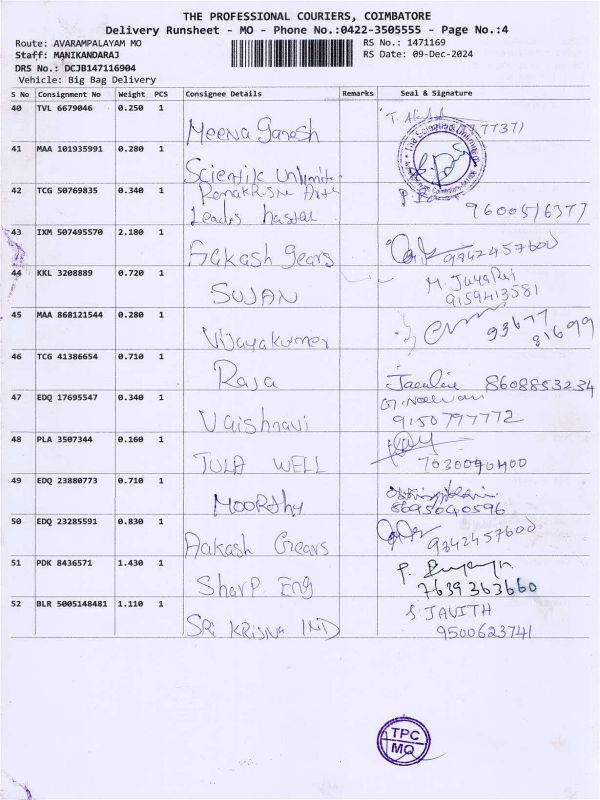 THE PROFESSIONAL COURIERS, COIMBATORE
Delivery Runsheet - MO - Phone No.:0422-3505555 - Page No.:4
Route: AVARAMPALAYAM MO RS No.: 1471169
Staff: MANIKANDARAJ RS Date: 09-Dec-2024
DRS No.: DCJB147116904
Vehicle: Big Bag Delivery
S No Consignment No Weight PCS Consignee Details Remarks Seal & Signature
40 TVL 6679046 0.250 1
Meena Ganesh
41 MAA 101935991 0.280 1
Scientific Unlimited
42 TCG 50769835 0.340 1
9600516377
43 IXM 507495570 2.180 1
Aakash Gears 9842457600
44 KKL 3208889 0.720 1
SUJAN 9159413581
45 MAA 868121544 0.280 1
Vijayakumar 93677 81699
46 TCG 41386654 0.710 1
Raja 8608853234
47 EDQ 17695547 0.340 1
Vaishnavi 9150797772
48 PLA 3507344 0.160 1
TULA WELL
49 EDQ 23880773 0.710 1
Moorthy 8695040596
50 EDQ 23285591 0.830 1
Aakash Gears 9842457600
51 PDK 8436571 1.430 1
Sharp Eng 7639363660
52 BLR 5005148481 1.110 1
S. JAVITH
SRI KRISNA IND 9500623741
TPC
MQ